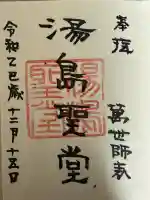 奉拝
萬世師表
湯島聖堂
令和乙巳歳十二月十五日